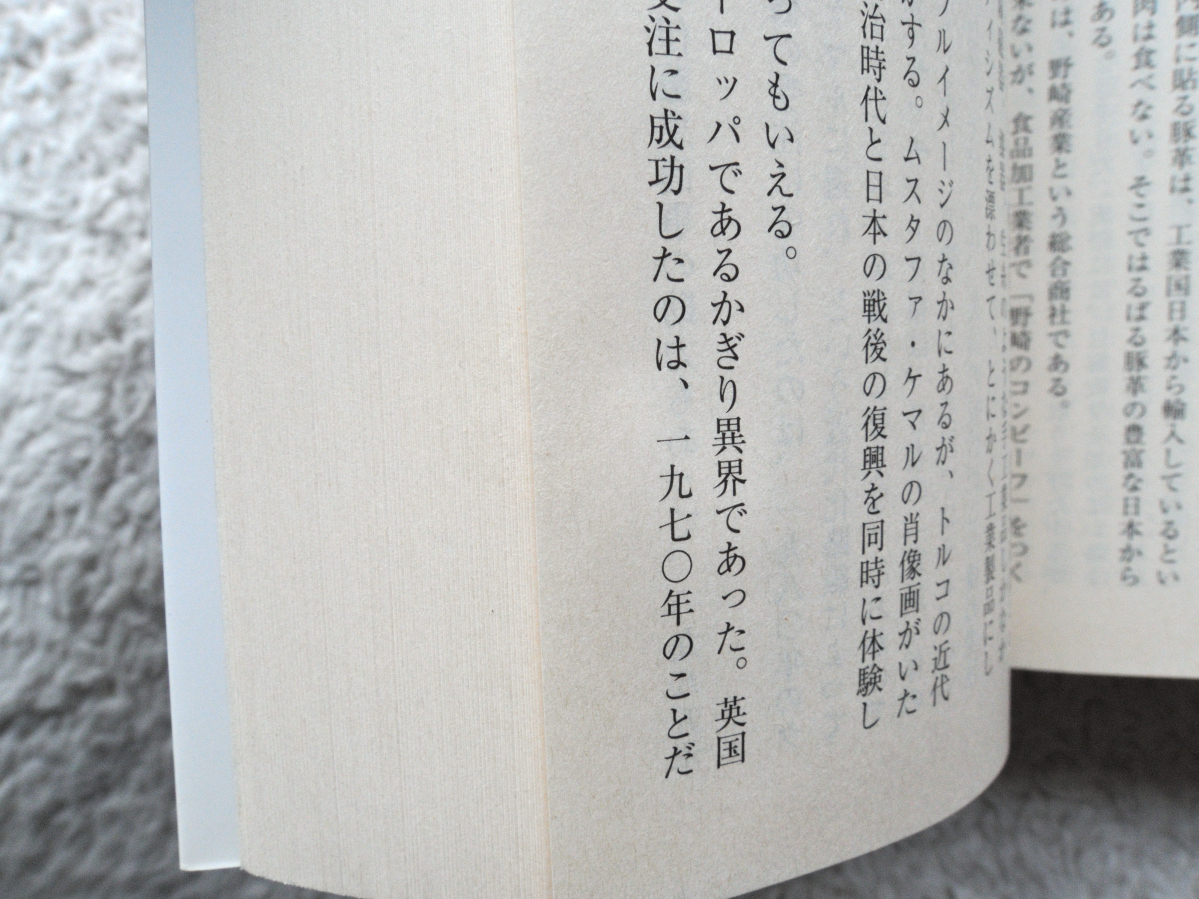 内側に貼る豚革は、工業国日本から輸入しているとい
肉は食べない。そこではるばる豚革の豊富な日本から
ある。
は、野崎産業という総合商社である。
来ないが、食品加工業者で「野崎のコンビーフ」をつく
ィシズムを漂わせて、とにかく工業製品にし
ルイメージのなかにあるが、トルコの近代
がする。ムスタファ・ケマルの肖像画がいた
治時代と日本の戦後の復興を同時に体験し
ってもいえる。
ーロッパであるかぎり異界であった。英国
受注に成功したのは、一九七〇年のことだ